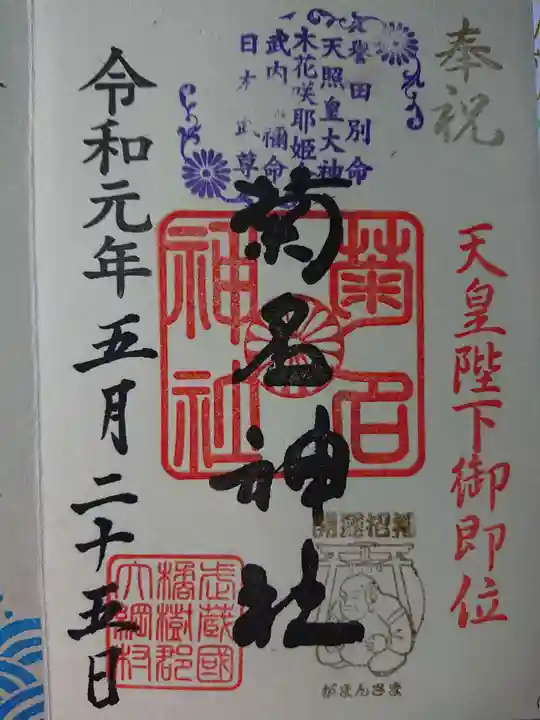 奉祝
天皇陛下御即位
誉田別命
天照皇大神
木花咲耶姫命
武内 禰命
日本武尊
菊名神社
菊名
神社
開運招福
がまんさま
武蔵國
橘樹郡
大綱村
令和元年五月二十五日